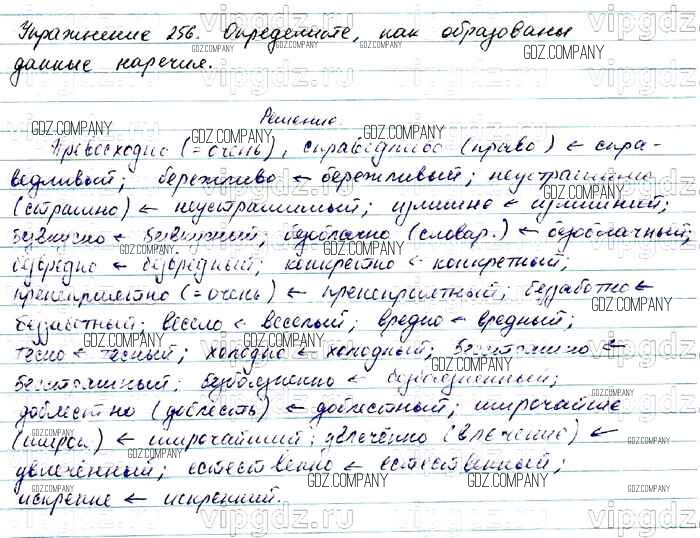 Упражнение 256. Определите, как образованы
данные наречия.
Решение.
Превосходно (= очень), справедливо (право) ← спра-
ведливый; бережливо ← бережливый; неустрашимо
(страшно) ← неустрашимый; излишне ← излишний;
безвкусно ← безвкусный; безоблачно (словар.) ← безоблачный;
безвредно ← безвредный; конкретно ← конкретный;
пренеприятно (= очень) ← пренеприятный; беззаботно ←
беззаботный; весело ← веселый; вредно ← вредный;
тесно ← тесный; холодно ← холодный; ←
безболезненно ← безболезненный;
доблестно (доблесть) ← доблестный; широчайше
← широчайший; увлечённо (влечение) ←
увлечённый; естественно ← естественный;
искренне ← искренний.
GDZ.COMPANY
vipgdz.ru